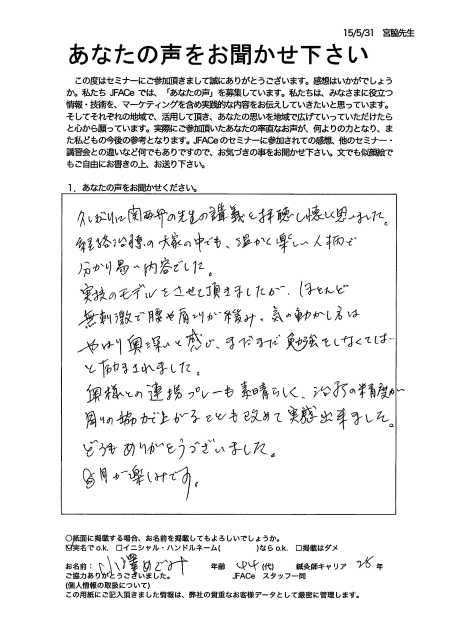 15/5/31　宮脇先生
あなたの声をお聞かせ下さい
この度はセミナーにご参加頂きまして誠にありがとうございます。感想はいかがでしょう
か。私たち JFACe では、「あなたの声」を募集しています。私たちは、みなさまに役立つ
情報・技術を、マーケティングを含め実践的な内容をお伝えしていきたいと思っています。
そしてそれぞれの地域で、活用して頂き、あなたの思いを地域で広げていっていただけたら
と心から願っています。実際にご参加頂いたあなたの率直なお声が、何よりの力となり、ま
た私どもの今後の参考となります。JFACeのセミナーに参加されての感想、他のセミナー・
講習会との違いなど何でもありですので、お気づきの事をお聞かせ下さい。文でも似顔絵で
もご自由にお書きの上、お送り下さい。
1．あなたの声をお聞かせください。
久しぶりに関西弁の先生の講義を拝聴し懐しく思いました。
経絡治療の大家の中でも、温かく楽しい人柄で
分かり易い内容でした。
実技のモデルをさせて頂きましたが、ほとんど
無刺激で腰や肩こりが緩み。気の動かし方は
やはり奥深いと感じ、まだまだ勉強をしなくては…
と励まされました。
奥様との連携プレーも素晴らしく、治療の精度が
周りの協力で上がることも改めて実感出来ました。
どうもありがとうございました。
月が楽しみです。
○紙面に掲載する場合、お名前を掲載してもよろしいでしょうか。
☑実名でo.k.　□イニシャル・ハンドルネーム(　　　　)ならo.k.　□掲載はダメ
お名前：小澤めぐみ　年齢　44(代)　鍼灸師キャリア　25　年
ご協力ありがとうございました。　JFACe　スタッフ一同
(個人情報の取扱について)
この用紙にご記入頂きました情報は、弊社の貴重なお客様データとして厳密に管理します。